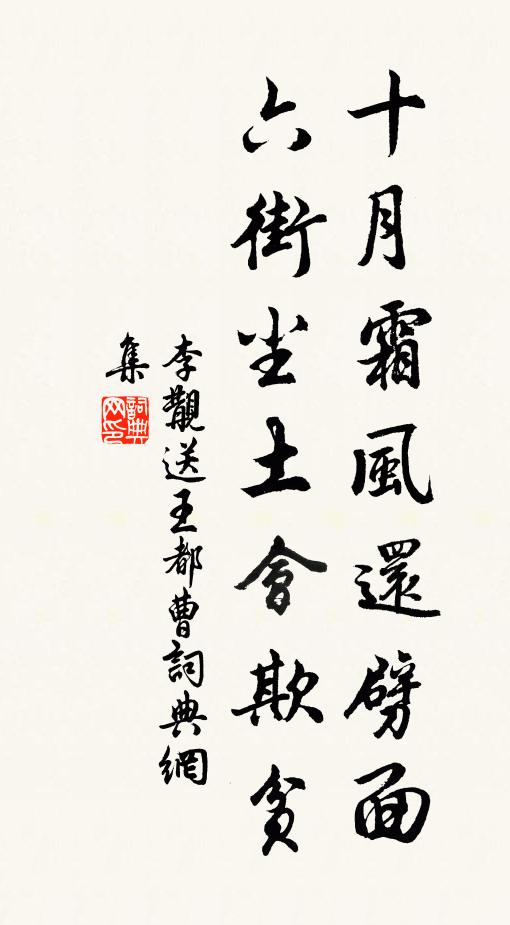 十月霜風還劈面
六街尘土會欺貧
李觀送王都曹詞典網
集
詞典
网印